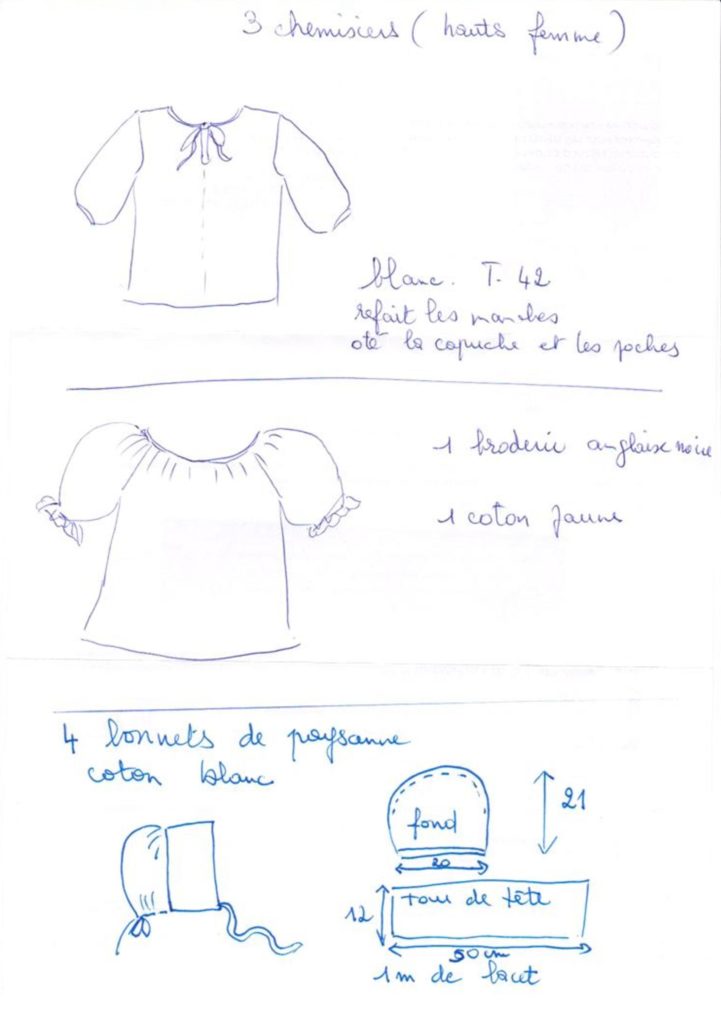 3 chemisiers (hauts femme)
blanc. T. 42
refait les manches
oté la capuche et les poches
1 broderie anglaise noire
1 coton jaune
4 bonnets de paysanne
coton blanc
fond
21
20
tour de tête
12
50 cm
1m de lacet